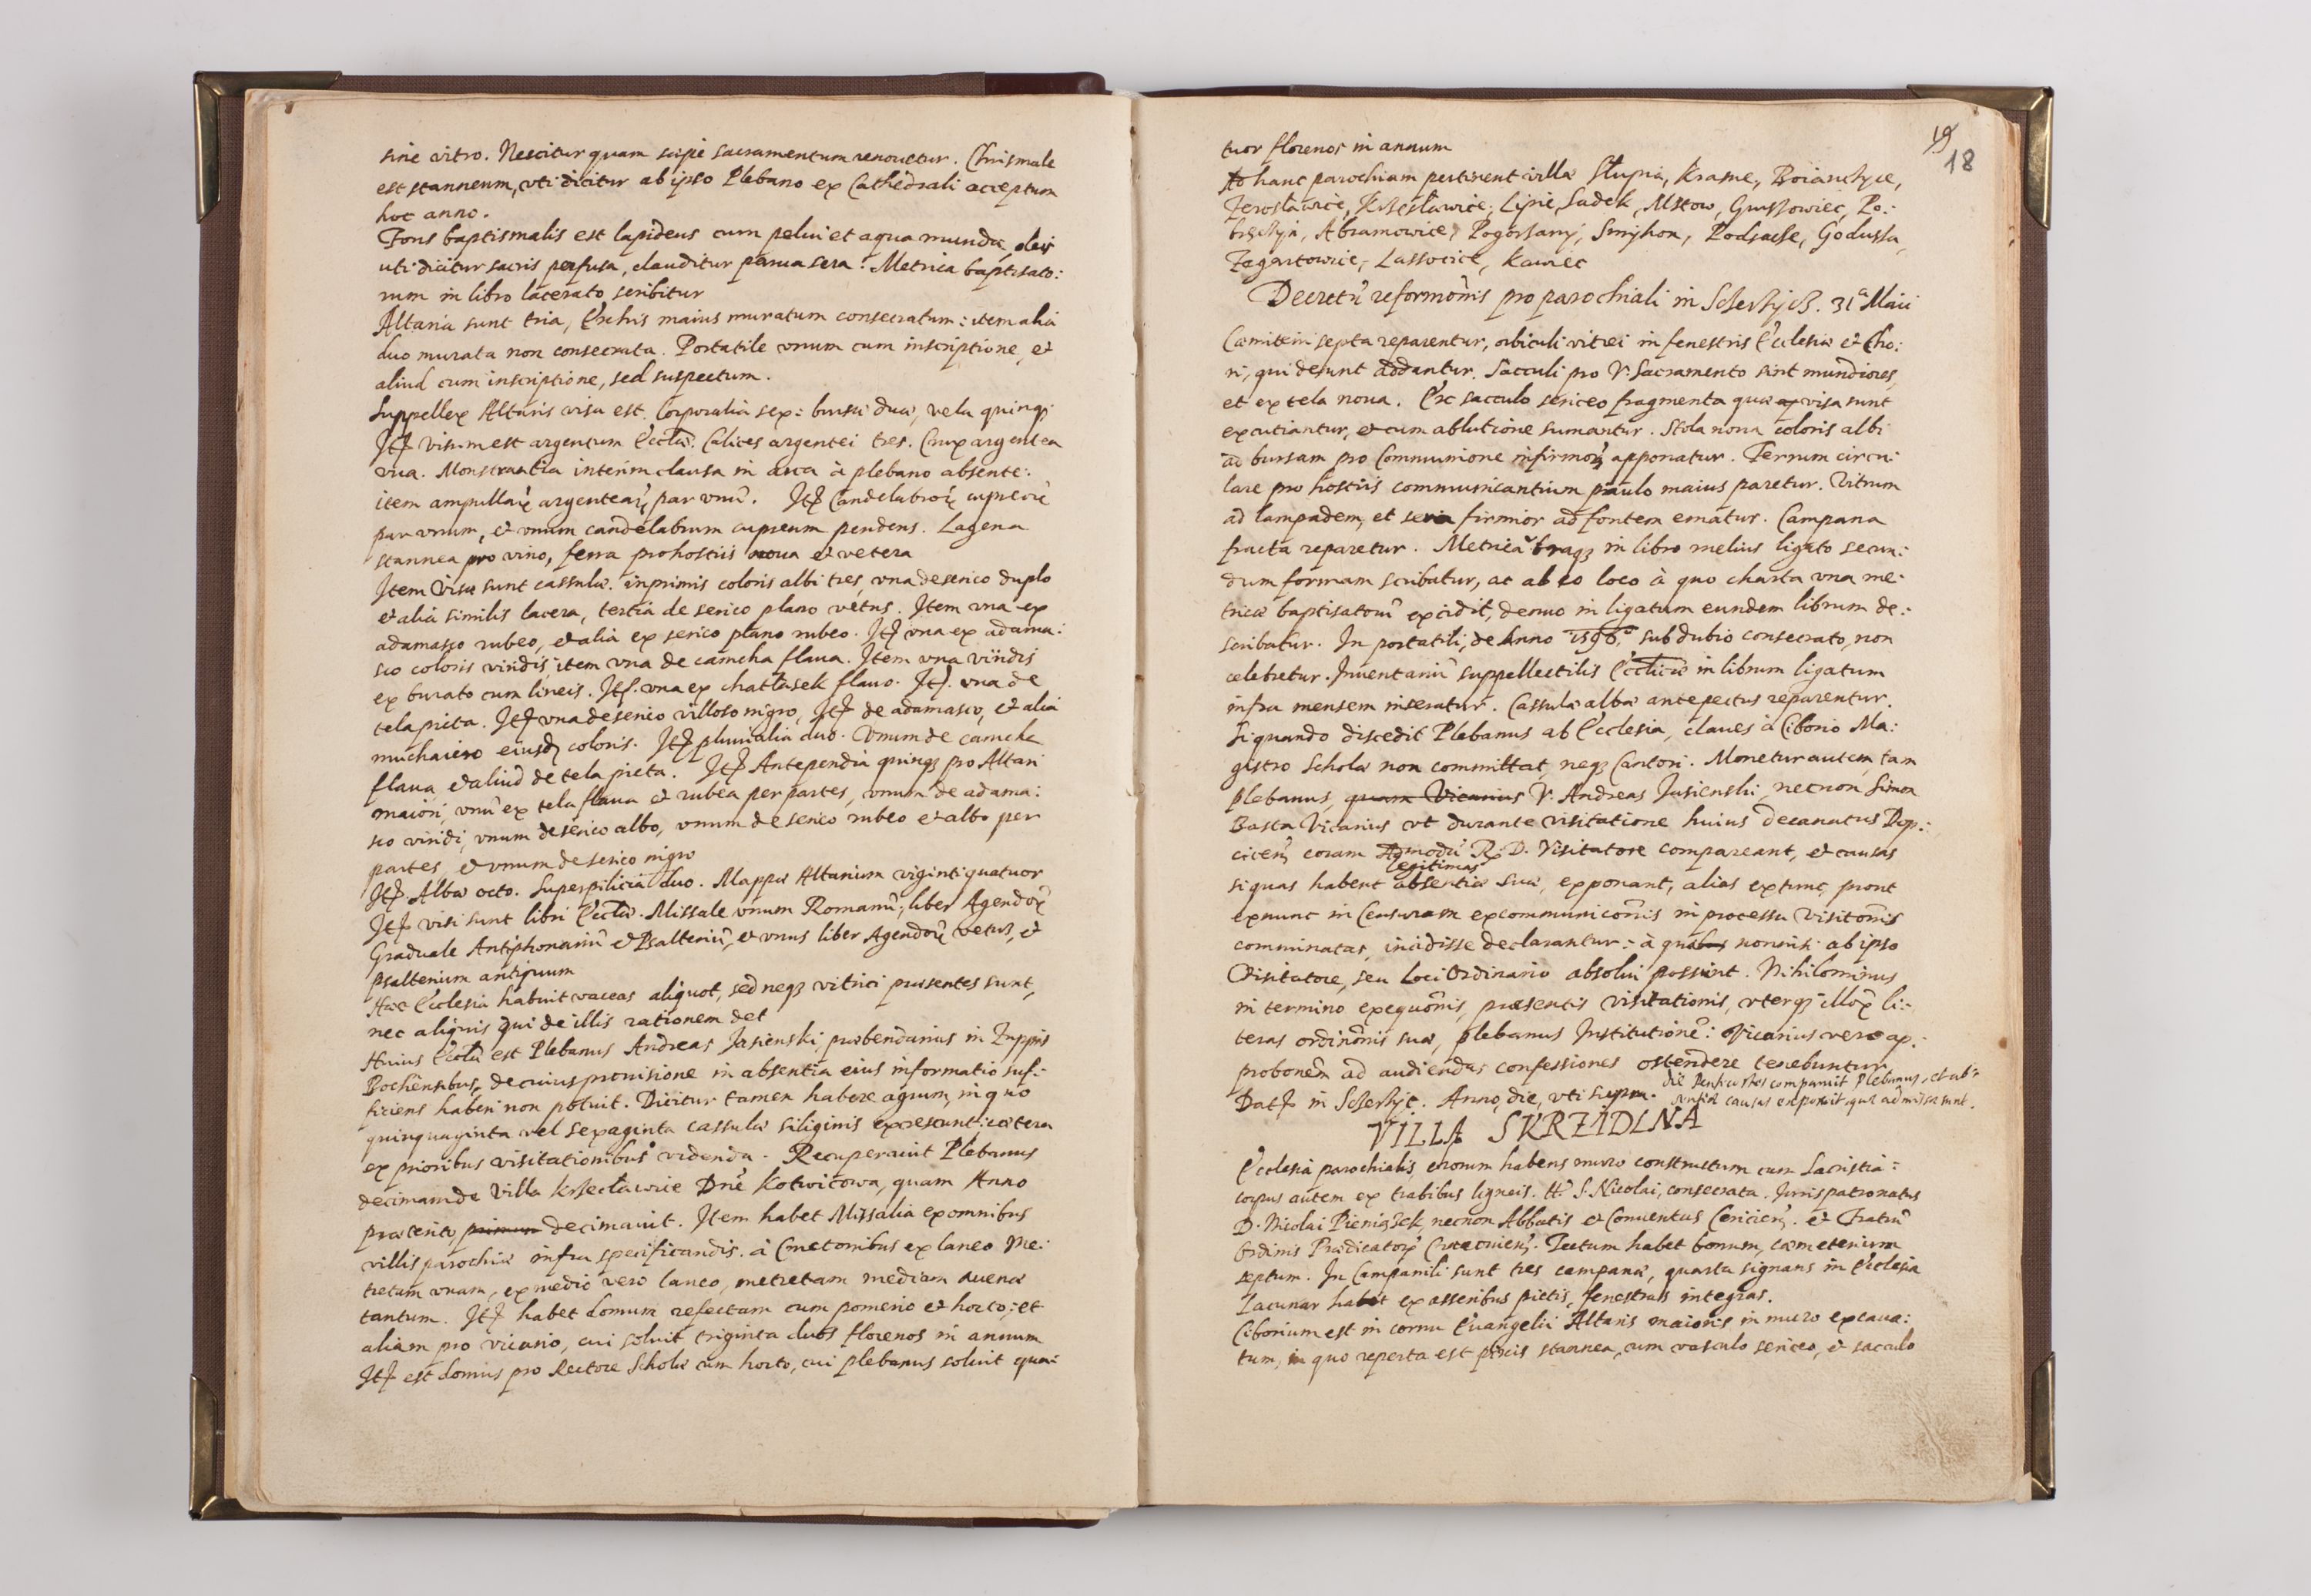 sine vitro. Nescitur quam sæpe sacramentum renouetur. Chrismale
est stanneum, vti dicitur ab ipso Plebano ex Cathedrali acceptum
hoc anno.
Fons baptismalis est lapideus cum pelui et aqua munda, oleis
uti dicitur sacris perfusa, clauditur parua sera. Metrica baptisato:
rum in libro lacerato scribitur
Altaria sunt tria, Ex his maius muratum consecratum: item alia
duo murata non consecrata. Portatile vnum cum inscriptione, et
aliud cum inscriptione, sed suspectum.
Suppellex Altaris visa est. Corporalia sex: bursæ duæ, vela quinq;
Itē visum est argentum Eccłæ. Calices argentei tres. Crux argentea
vna. Monstrantia interim clausa in arca à plebano absente:
item ampullaꝝ argenteaꝝ par vnū. Itē Candelabroꝝ cupreoꝝ
par vnum, et vnum candelabrum cupreum pendens. Lagena
stannea pro vino, ferra pro hostiis noua et vetera
Item Visæ sunt cassulæ. inprimis coloris albi tres, vna de serico duplo
et alia similis lacera, tertia de serico plano vetus. Item vna ex
adamasco rubeo, et alia ex serico plano rubeo. Itē vna ex adama:
sco coloris viridis, item vna de camcha flaua. Item vna viridis
ex burato cum lineis. Itē. vna ex chatłasek flauo. Itē. vna de
tela picta. Itē vna de serico villoso nigro, Itē de adamasco, et alia
muchaiero eiusd coloris. Itē pluuialia duo. Vnum de camcha
flaua, et aliud de tela picta. Itē Antependia quinq; pro Altari
maiori, vnū ex tela flaua et rubea per partes, vnum de adama:
sco viridi, vnum de serico albo, vnum de serico rubeo et albo per
partes, et vnum de serico nigro
Itē. Albæ octo. Superpilicia duo. Mappæ Altarium viginti quatuor
Itē visi sunt libri Eccłæ. Missale vnum Romanū, liber Agendoꝝ
Graduale Antiphonariū et Psalteriū, et vnus liber Agendoꝝ vetus, et
psalterium antiquum
Hæc Ecclesia habuit vaccas aliquot, sed neq; vitrici præsentes sunt,
nec aliquis qui de illis rationem det
Huius Eccłæ est Plebanus Andreas Jasienski, præbendarius in Zuppis
Bochensibus, de cuius prouisione in absentia eius informatio suf:
ficiens haberi non potuit. Dicitur tamen habere agrum, in quo
quinquaginta vel sexaginta cassulæ siliginis excrescunt: cætera
ex prioribus visitationibus videnda. Recuperauit Plebanus
decimam de Villa Krzecławice Dnē Kotwiczowa, quam Anno
præterito, primum decimauit. Item habet Missalia ex omnibus
villis parochiæ infra specificandis. à Cmetonibus ex laneo me:
tretam vnam, ex medio vero laneo, metretam mediam auenæ
tantum. Itē habet domum refectam cum pomerio et horto; et
aliam pro vicario, cui soluit triginta duos florenos in annum
Itē est domus pro Rectore Scholæ cum horto, cui plebanus soluit qua:
19
18
tuor florenos in annum
Ad hanc parochiam pertinent villæ Słupia, Krasne, Boianczyce,
Zerosławice, Krzesławice, Lipie, Sadek, Mstow, Gruszowiec, Po:
bręczyn, Abramowice, Pogorzany, Smykon, Podjasse, Godussa,
Zegartowice, Lassocice, Kawiec
Decretū reformōnis pro parochiali in Sczerzycz. 31ª Maii
Cæmiterii septa reparentur, orbiculi vitrei in fenestris Ecclesiæ et Cho:
ri, qui desunt addantur. Sacculi pro V. Sacramento sint mundiores,
et ex tela noua. Ex sacculo sericeo fragmenta quæ visa sunt
excutiantur, et cum ablutione sumantur. Stola noua coloris albi
ad bursam pro Communione infirmoꝝ apponatur. Ferrum circu:
lare pro hostiis communicantium paulo maius paretur. Vitrum
ad lampadem, et sera firmior ad fontem ematur. Campana
fracta reparetur. Metrica vtraq; in libro melius ligato secun:
dum formam scribatur, ac ab eo loco à quo charta vna me:
tricæ baptisatorū excidit, denuo in ligatum eundem librum de:
scribatur. In portatili, de Anno 1596º sub dubio consecrato, non
celebretur. Inuentariū suppellectilis Eccłicæ in librum ligatum
infra mensem inseratur. Cassulæ albæ antepectus reparentur.
Si quando discedit Plebanus ab Ecclesia, claues à Ciborio Ma:
gistro Scholæ non committat, neq; Cantori. Monetur autem, tam
plebanus, quam Vicarius V. Andreas Jasienski, necnon Simon
Basta Vicarius vt durante visitatione huius decanatus Dop:
cicen̄, coram Admodū R. D. Visitatore compareant, et causas
legitimas
si quas habent absentiæ suæ, exponant, alias ex tunc, prout
exnunc in Censuram excommunicōnis in processu Visitōnis
comminatas, incidisse declarantur: à quibus nonnisi ab ipso
Visitatore, seu Loci Ordinario absolui possint. Nihilominus
in termino exequōnis, præsentis visitationis, vterq; illoꝝ li:
teras ordinōnis suæ, plebanus Institutionē: Vicarius vero ap:
probonēm ad audiendas confessiones ostendere tenebuntur.
Datē in Sczerzyc. Anno, die, vti supra. die comparuit Plebanus, et ab:
sentiæ causas exposuit, quæ admissæ sunt.
VILLA SKRZIDLNA
Ecclesia parochialis, chorum habens muro constructum cum Sacristia:
corpus autem ex trabibus ligneis. tt. S. Nicolai, consecrata. Juris patronatus
D. Nicolai Pieniążek, necnon Abbatis et Conuentus Cericien̄. et Fratrū
Ordinis Prædicatoꝝ Cracouien̄. Tectum habet bonum, cæmeterium
septum. In Campanili sunt tres campanæ, quarta signans in Ecclesia
Lacunar habet ex asseribus pictis, fenestras integras.
Ciborium est in cornu Euangelii Altaris maioris in muro excaua:
tum, in quo reperta est pixis stannea, cum vasculo sericeo, et sacculo